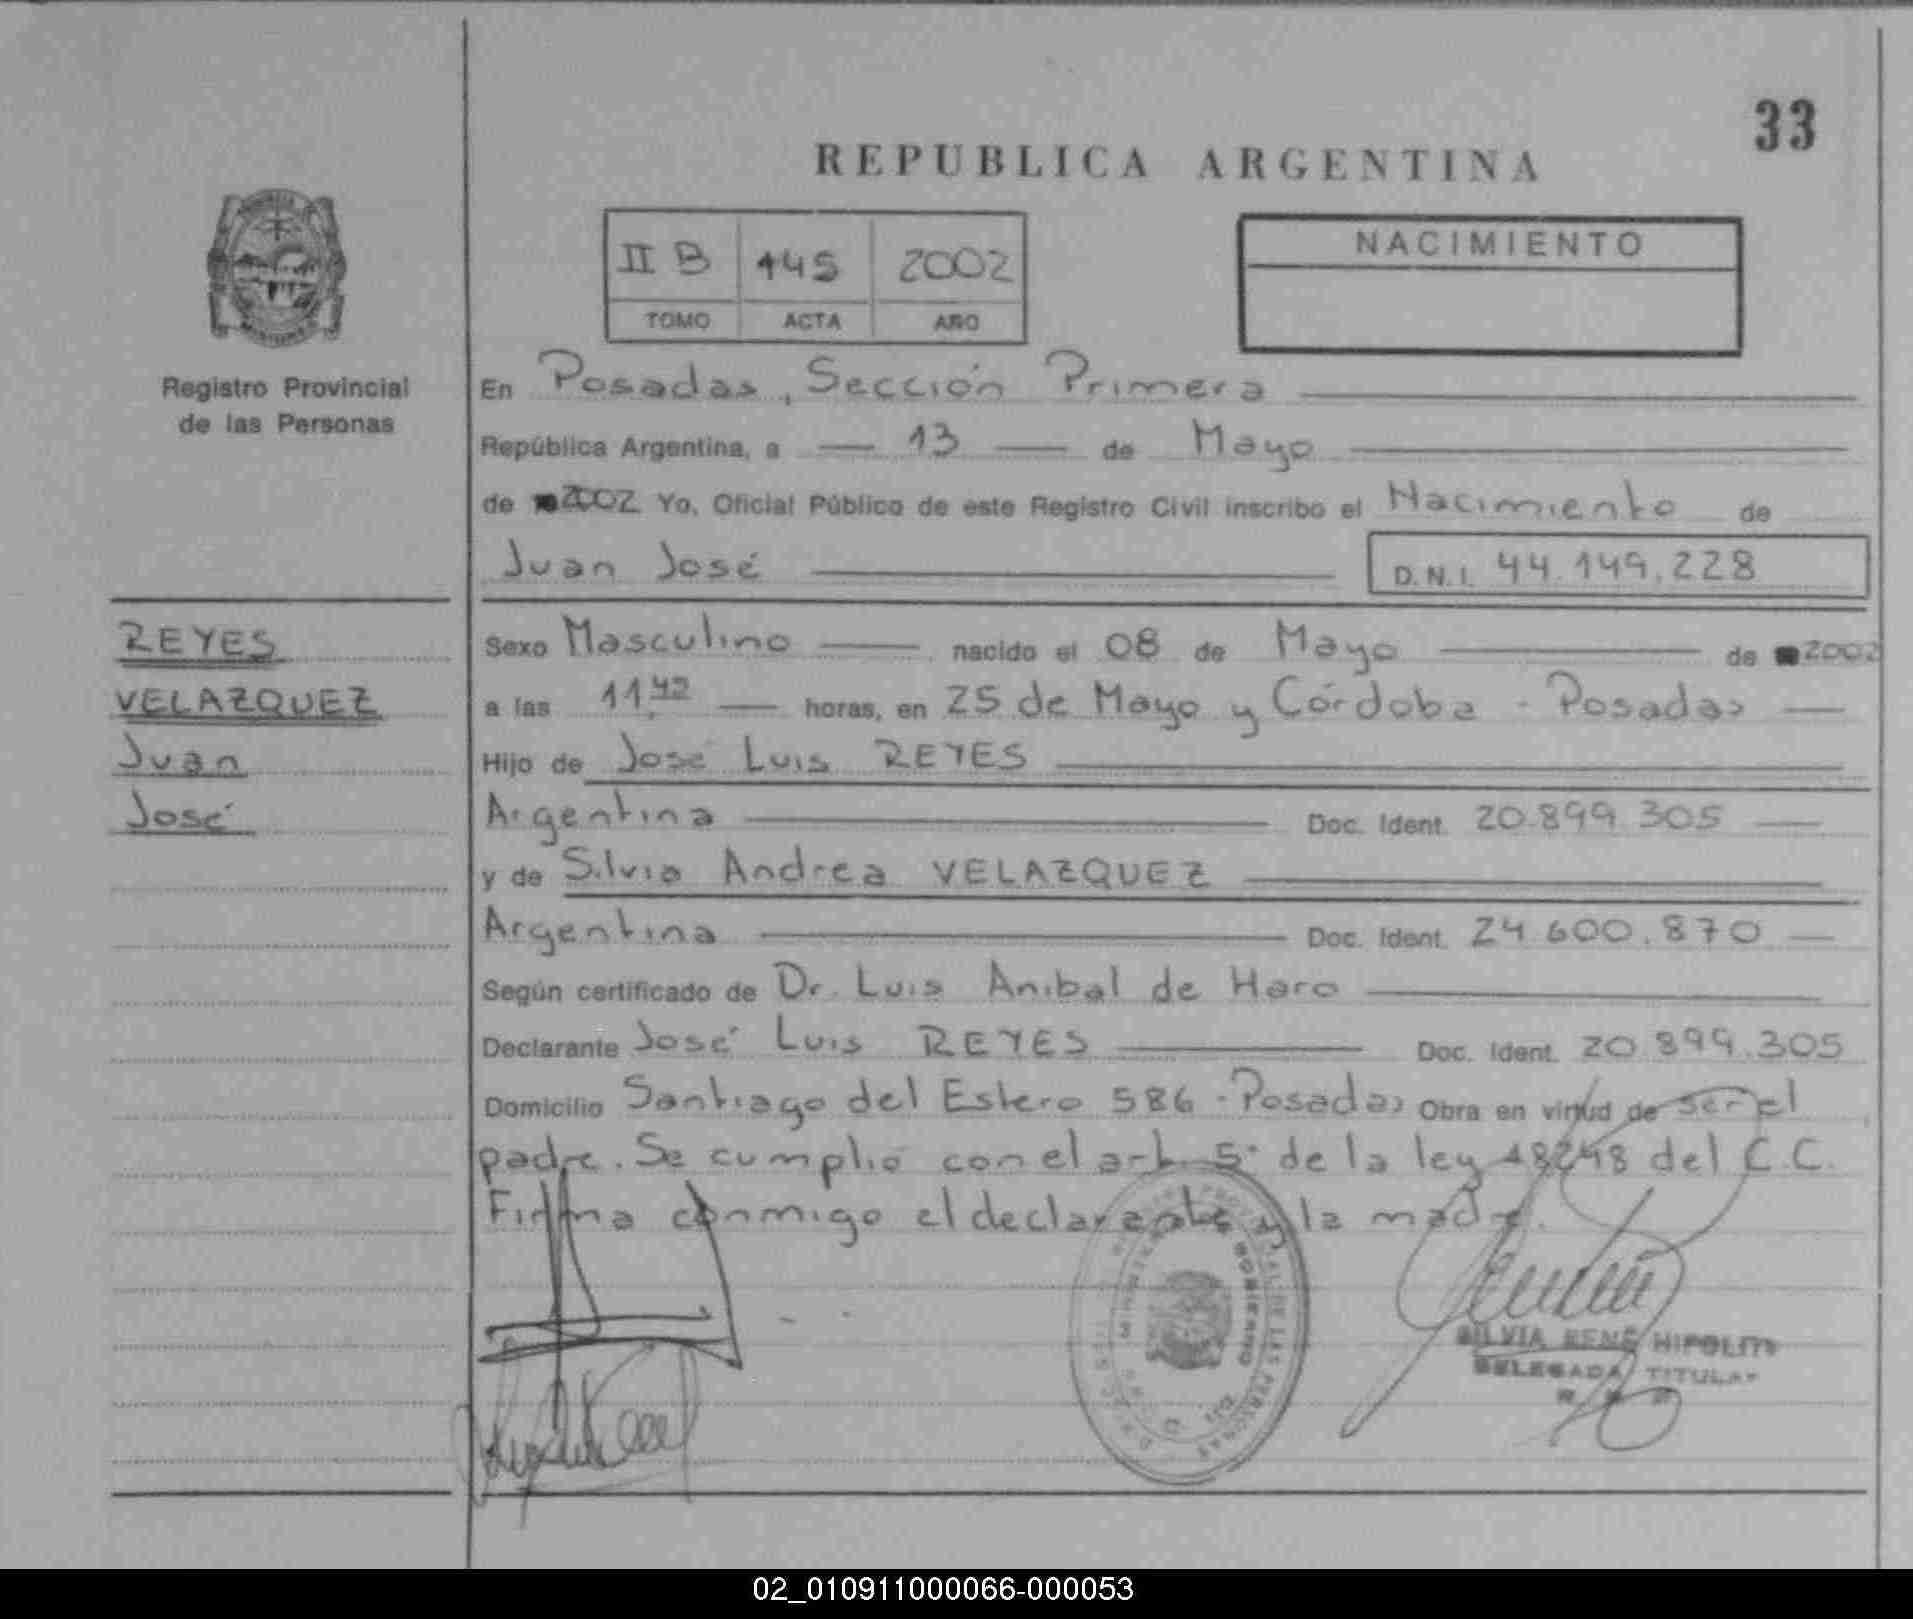 33
REPUBLICA ARGENTINA
II B 145 2002
TOMO ACTA AÑO
NACIMIENTO
Registro Provincial
de las Personas
En Posadas, Sección Primera
República Argentina, a 13 de Mayo
de 2002 Yo, Oficial Público de este Registro Civil inscribo el Nacimiento de
Juan José D.N.I. 44.149.228
REYES
VELAZQUEZ
Juan
José
Sexo Masculino nacido el 08 de Mayo de 2002
a las 11,42 horas, en 25 de Mayo y Córdoba - Posadas
Hijo de José Luis REYES
Argentina Doc. Ident. 20.899.305
y de Silvia Andrea VELAZQUEZ
Argentina Doc. Ident. 24.600.870
Según certificado de Dr. Luis Anibal de Haro
Declarante José Luis REYES Doc. Ident. 20.899.305
Domicilio Santiago del Estero 586 - Posadas Obra en virtud de ser el
padre. Se cumplió con el art. 5° de la ley 18248 del C.C.
Firma conmigo el declarante y la madre.
SILVIA RENE HIPOLITO
DELEGADA TITULAR
02_010911000066-000053